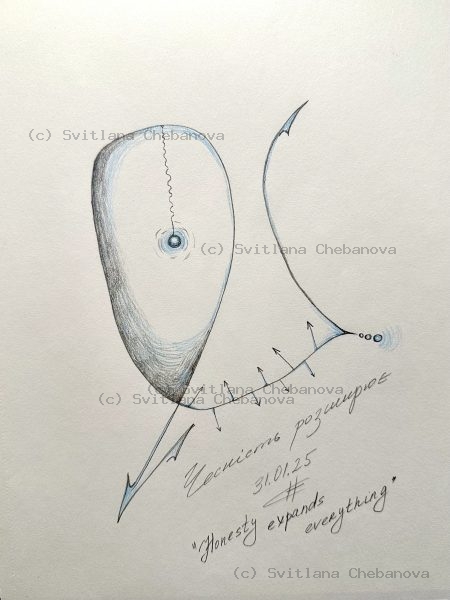 (c) Svitlana Chebanova
(c) Svitlana Chebanova
(c) Svitlana Chebanova
(c) Svitlana Chebanova
Чесність розширює
31.01.25
"Honesty expands
everything"
(c) Svitlana Chebanova